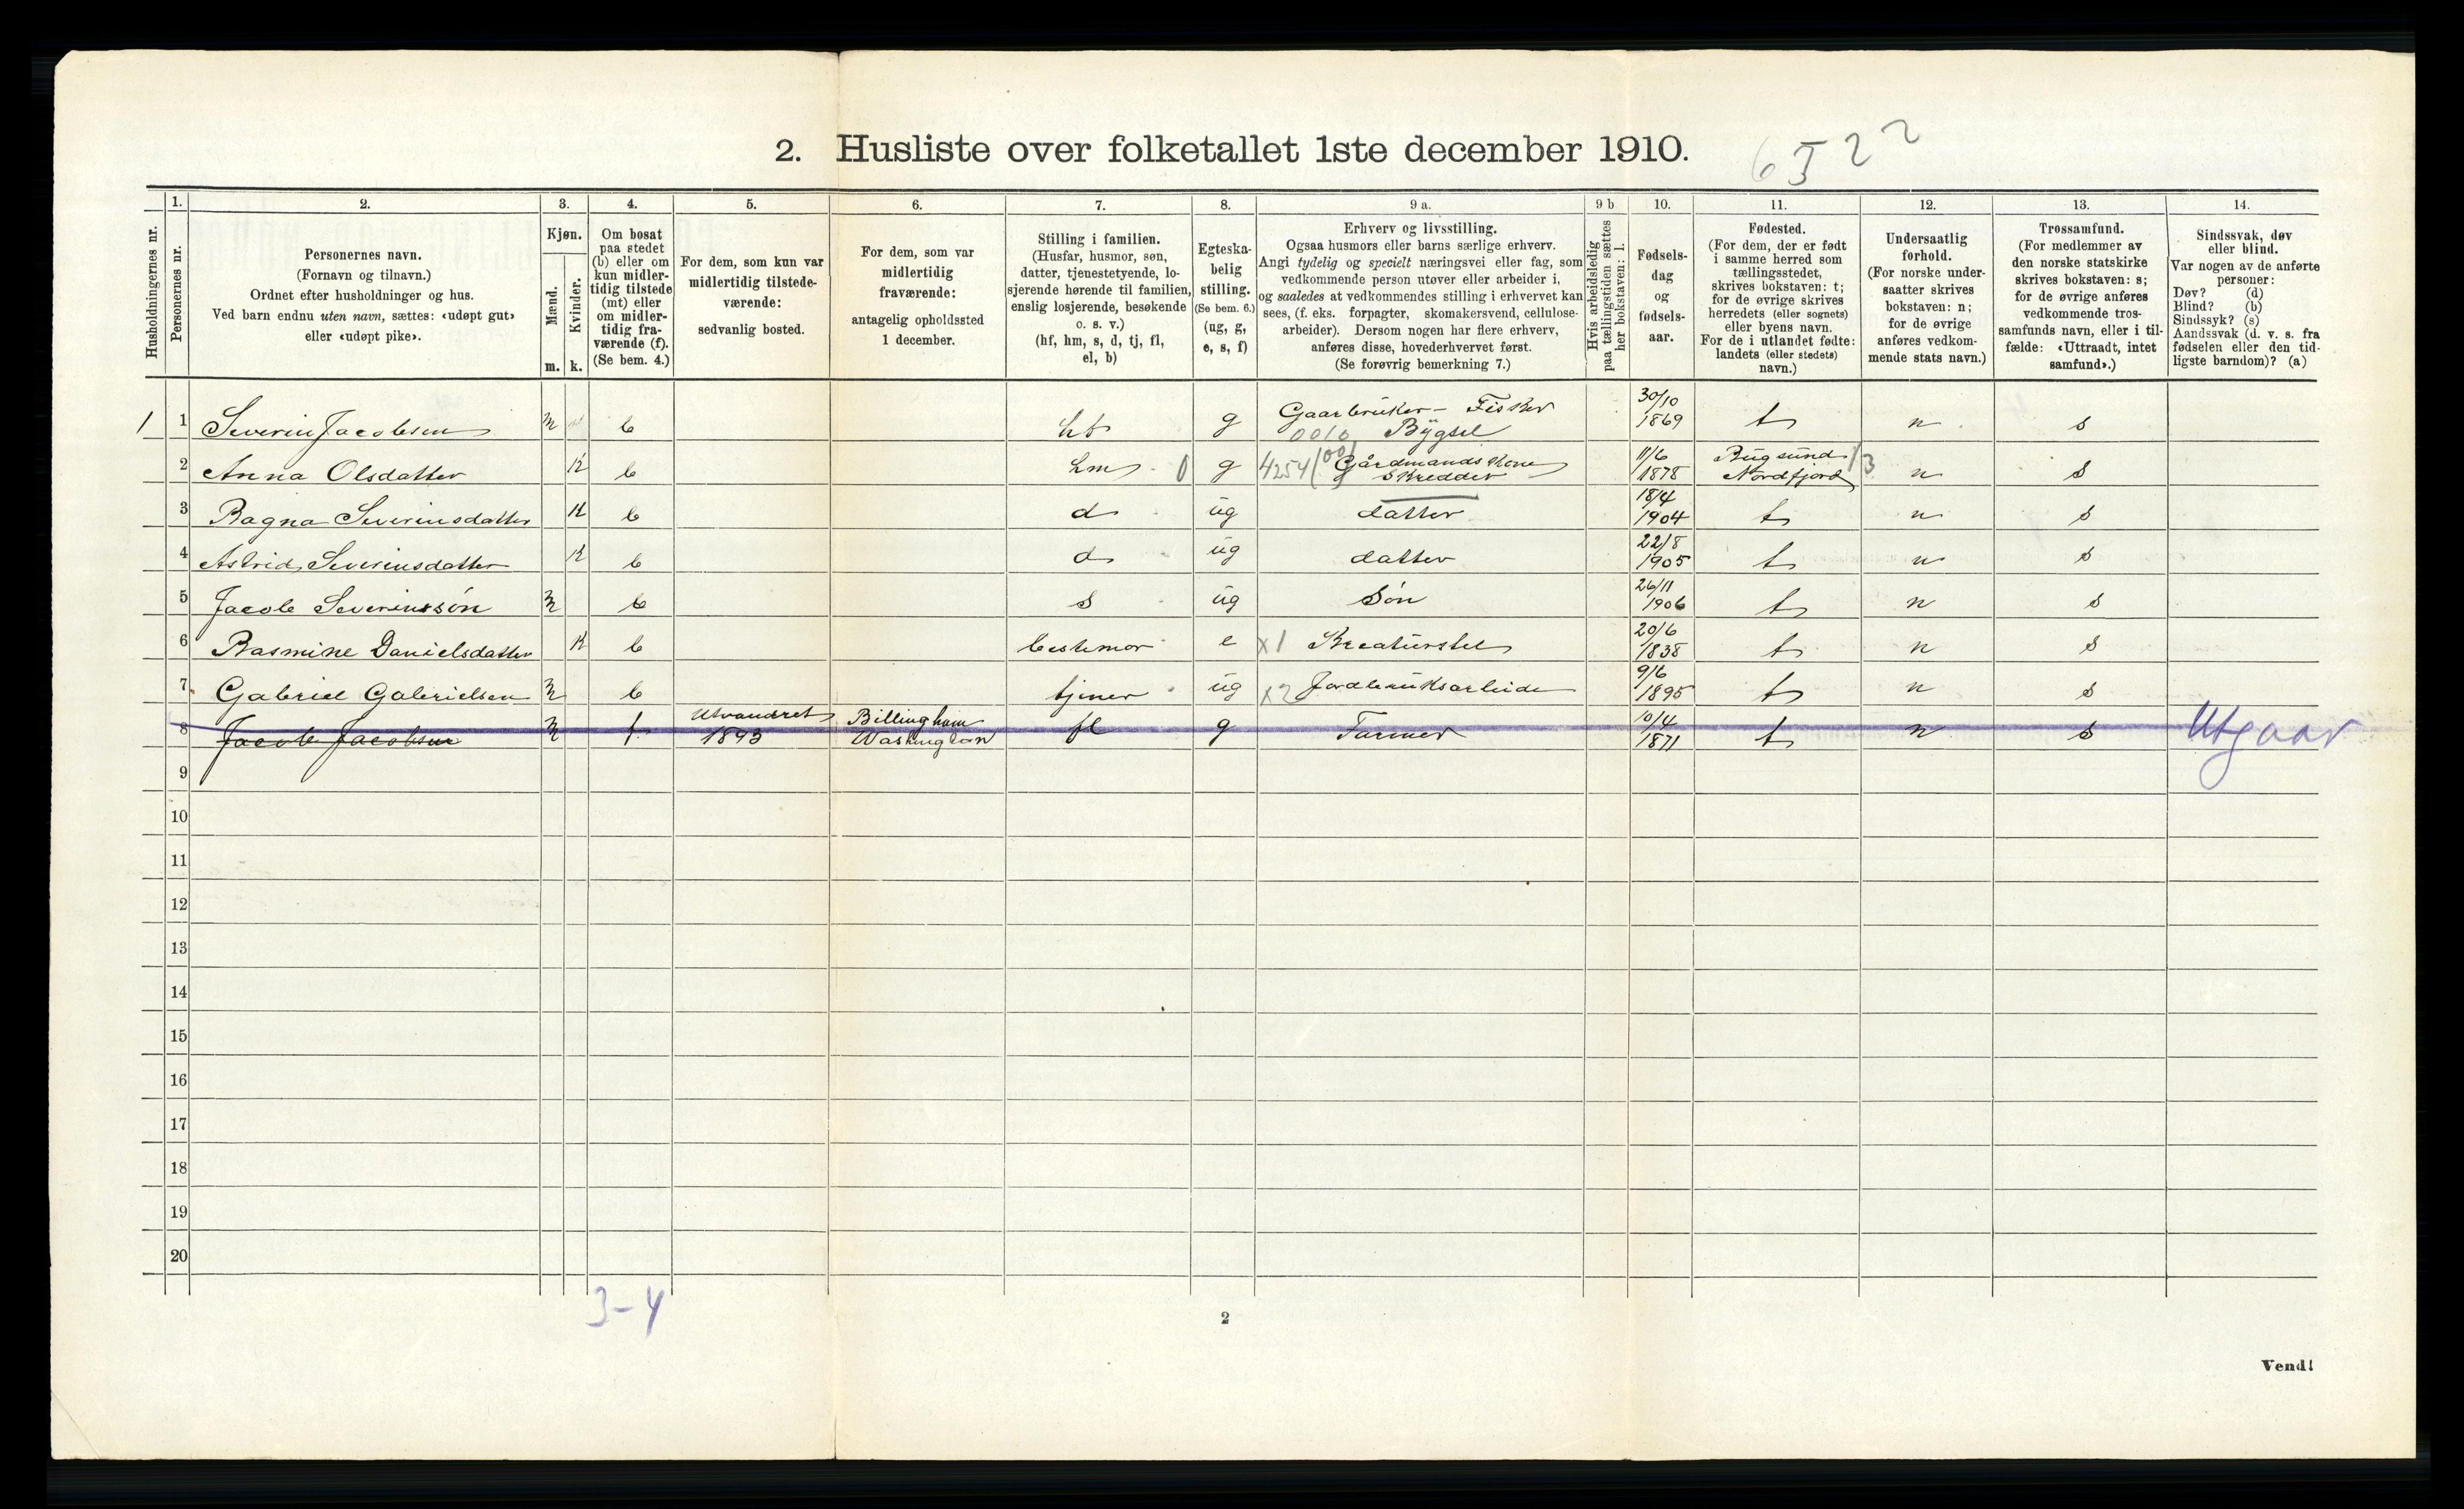 2. Husliste over folketallet 1ste december 1910.
6522
Husholdningernes nr.
1.
Personernes nr.
2.
Personernes navn.
(Fornavn og tilnavn.)
Ordnet efter husholdninger og hus.
Ved barn endnu uten navn, sættes: «udøpt gut»
eller «udøpt pike».
3.
Kjøn.
Mænd.
Kvinder.
m. k.
4.
Om bosat
paa stedet
(b) eller om
kun midler-
tidig tilstede
(mt) eller
om midler-
tidig fra-
værende (f).
(Se bem. 4.)
5.
For dem, som kun var
midlertidig tilstede-
værende:
sedvanlig bosted.
6.
For dem, som var
midlertidig
fraværende:
antagelig opholdssted
1 december.
7.
Stilling i familien.
(Husfar, husmor, søn,
datter, tjenestetyende, lo-
sjerende hørende til familien,
enslig losjerende, besøkende
o. s. v.)
(hf, hm, s, d, tj, fl,
el, b)
8.
Egteska-
belig
stilling.
(Se bem. 6.)
(ug, g,
e, s, f)
9 a.
Erhverv og livsstilling.
Ogsaa husmors eller barns særlige erhverv.
Angi tydelig og specielt næringsvei eller fag, som
vedkommende person utøver eller arbeider i,
og saaledes at vedkommendes stilling i erhvervet kan
sees, (f. eks. forpagter, skomakersvend, cellulose-
arbeider). Dersom nogen har flere erhverv,
anføres disse, hovederhvervet først.
(Se forøvrig bemerkning 7.)
9 b
Hvis arbeidsledig
paa tællingstiden sættes
her bokstaven: l.
10.
Fødsels-
dag
og
fødsels-
aar.
11.
Fødested.
(For dem, der er født
i samme herred som
tællingsstedet,
skrives bokstaven: t;
for de øvrige skrives
herredets (eller sognets)
eller byens navn.
For de i utlandet fødte:
landets (eller stedets)
navn.)
12.
Undersaatlig
forhold.
(For norske under-
saatter skrives
bokstaven: n;
for de øvrige
anføres vedkom-
mende stats navn.)
13.
Trossamfund.
(For medlemmer av
den norske statskirke
skrives bokstaven: s;
for de øvrige anføres
vedkommende tros-
samfunds navn, eller i til-
fælde: «Uttraadt, intet
samfund».)
14.
Sindssvak, døv
eller blind.
Var nogen av de anførte
personer:
Døv? (d)
Blind? (b)
Sindssyk? (s)
Aandssvak (d. v. s. fra
fødselen eller den tid-
ligste barndom)? (a)
1 1 Severin Jacobsen m b hf g Gaarbruker - Fisker 0010 Bygsel 30/10 1869 t n s
2 Anna Olsdatter K b hm 0 g 4254 Gårdmandskone Skredder 11/6 1878 Bugsund Nordfjord 13 n s
3 Ragna Severinsdatter K b d ug datter 18/4 1904 t n s
4 Astrid Severinsdatter K b d ug datter 22/8 1905 t n s
5 Jacob Severinssön m b s ug Sön 26/11 1906 t n s
6 Rasmine Danielsdatter K b bestemor e x1 Kreaturstel 20/6 1838 t n s
7 Gabriel Gabrielsen m b tjener ug x2 Jordbruksarbeide 9/6 1895 t n s
8 Jacob Jacobsen m f Utvandret 1893 Billingham Washington fl g Farmer 10/4 1871 t n s Utgaar
9
10
11
12
13
14
15
16
17
18
19
20
3-4
2
Vend!